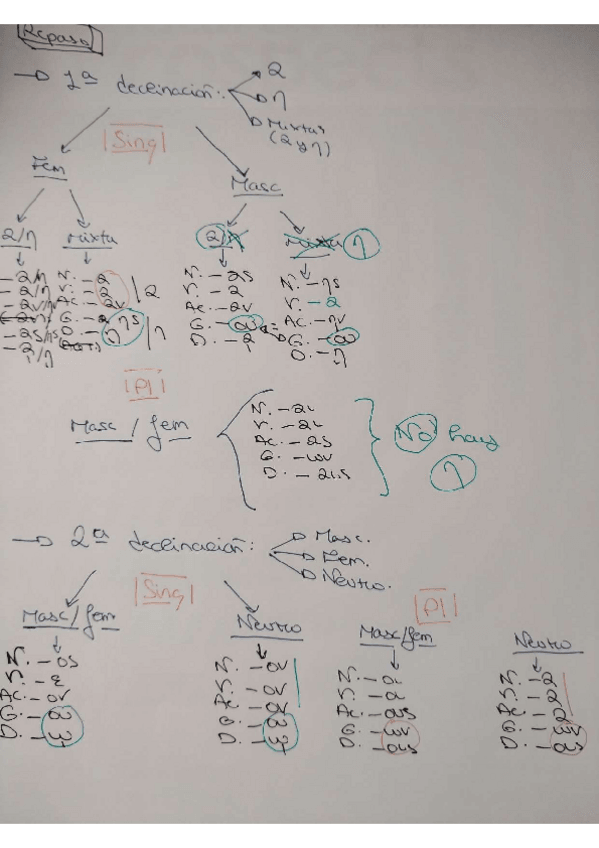 Repaso
→ 1ª declinación:
→ α
→ η
→ Mixtas
(α y η)
Sing
Fem
Masc
α/η
Mixta
α/η
Mixta η
- α/η
- α/η
- αν/ην
- ας/ης
- ᾳ/ῃ
N. - α
V. - α
Ac. - αν
G. - ης
D. - ῃ
α
η
N. - ας
V. - α
Ac. - αν
G. - ου
D. - ᾳ
N. - ης
V. - α
Ac. - ην
G. - ου
D. - ῃ
Pl
Masc / fem
N. - αι
V. - αι
Ac. - ας
G. - ων
D. - αις
No hay
η
→ 2ª declinación:
→ Masc.
→ Fem.
→ Neutro.
Sing
Pl
Masc/fem
Neutro
Masc/fem
Neutro
N. - ος
V. - ε
Ac. - ον
G. -
D. - ῳ
N. - ον
V. - ον
Ac. - ον
G. -
D. - ῳ
N. - οι
V. - οι
Ac. - ους
G. - ων
D. - οις
N. - α
V. - α
Ac. - α
G. - ων
D. -